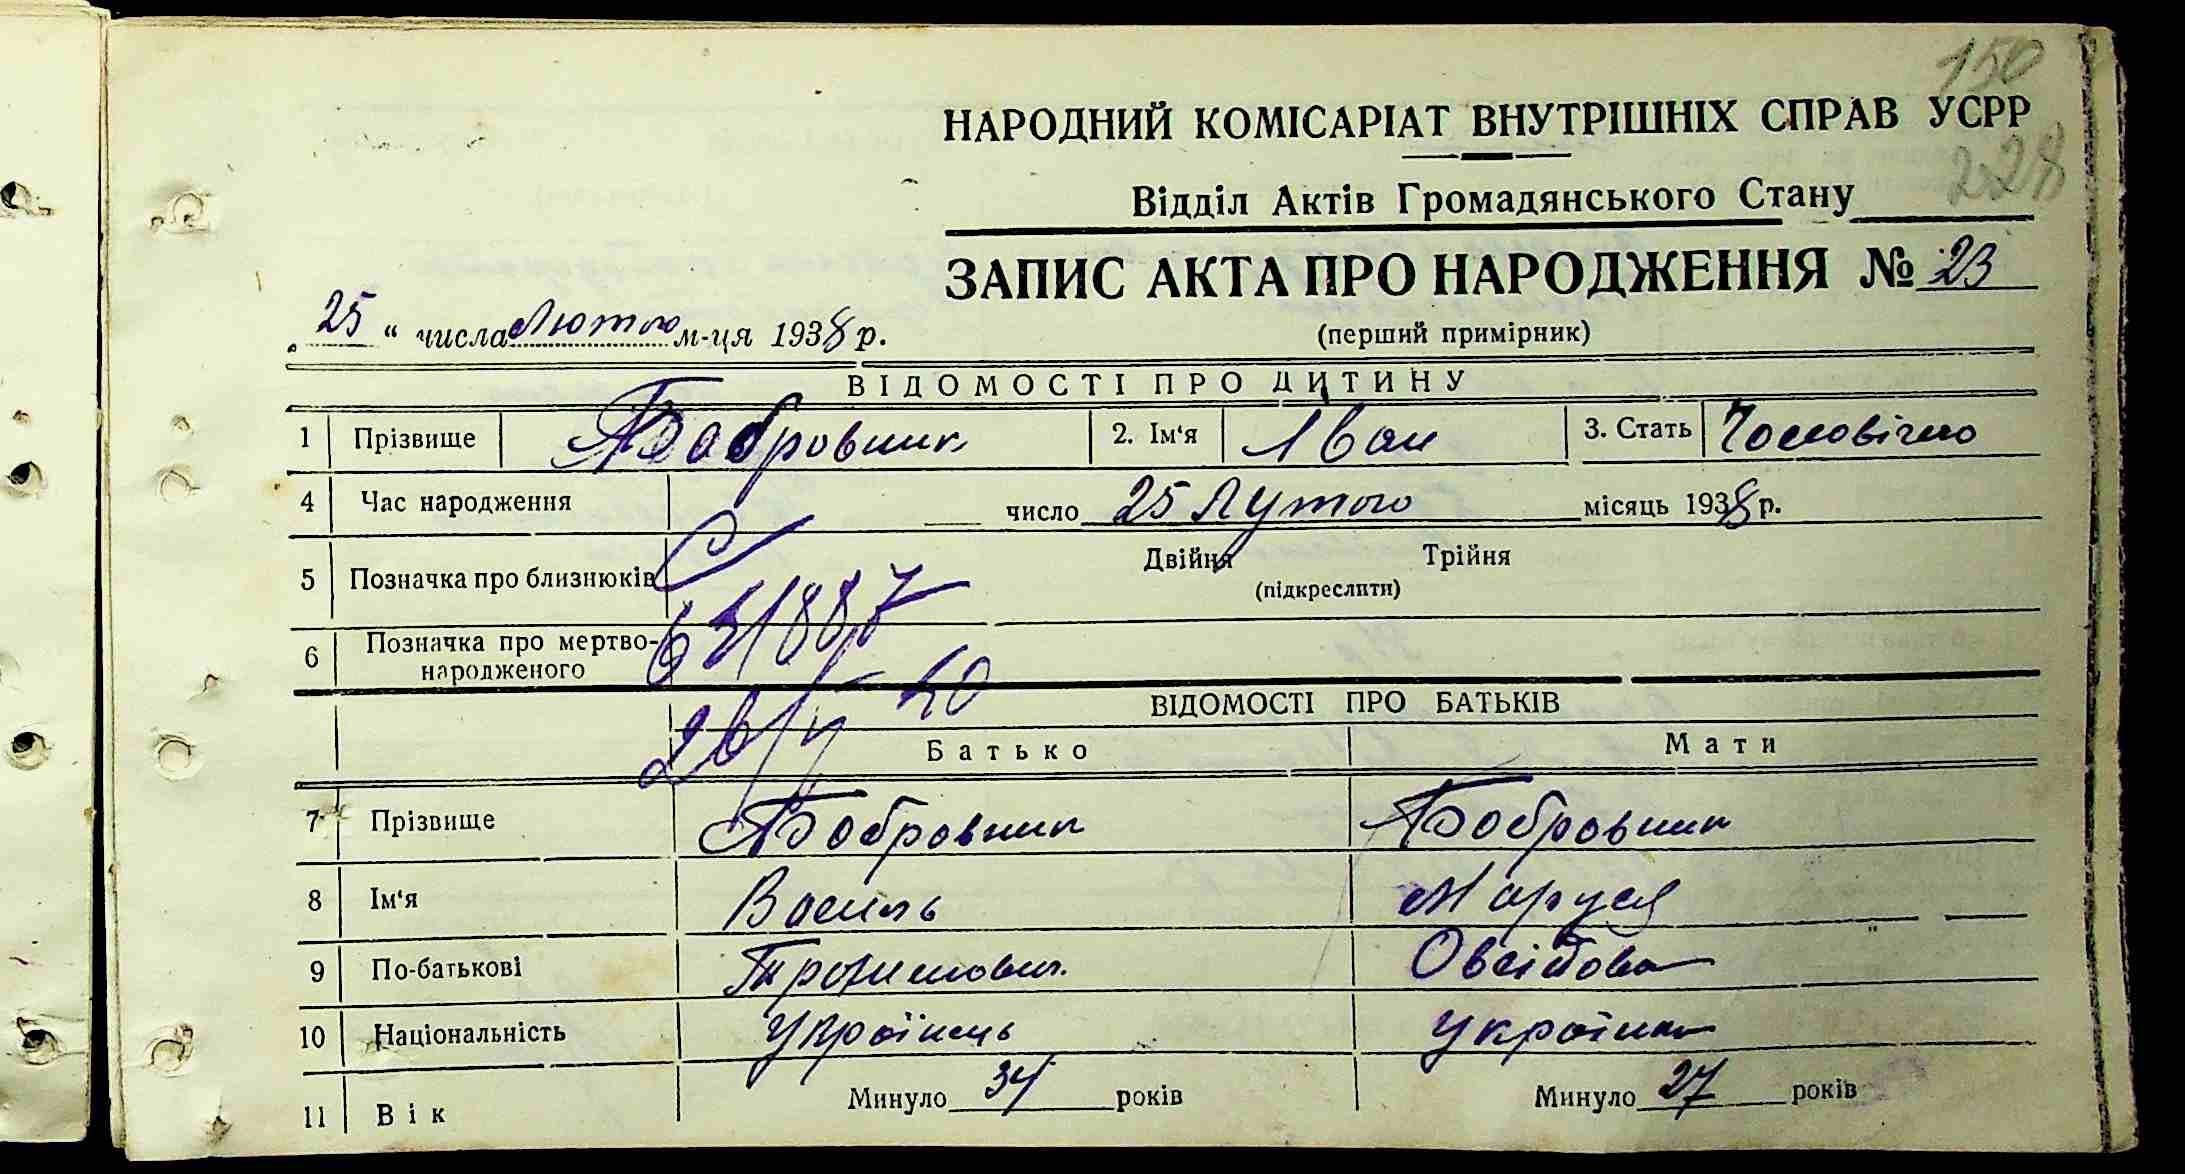 150
НАРОДНИЙ КОМІСАРІАТ ВНУТРІШНІХ СПРАВ УСРР
228
Відділ Актів Громадянського Стану
ЗАПИС АКТА ПРО НАРОДЖЕННЯ № 23
(перший примірник)
„25 “ числа Лютого м-ця 1938 р.
ВІДОМОСТІ ПРО ДИТИНУ
1 Прізвище Бобровник 2. Ім‘я Іван 3. Стать
4 Час народження число 25 Лутого місяць 1938 р.
5 Позначка про близнюків Двійня Трійня
(підкреслити)
6 Позначка про мертво-
народженого
ВІДОМОСТІ ПРО БАТЬКІВ
Батько Мати
7 Прізвище Бобровник Бобровник
8 Ім‘я Василь Маруся
9 По-батькові
10 Національність Українець Українка
11 Вік Минуло 34 років Минуло 27 років